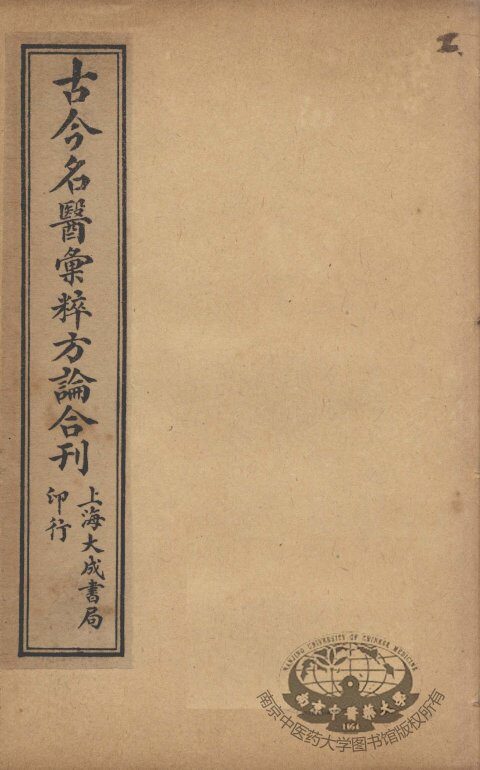 古今名醫彙粹方論合刊
上海大成書局
印行
NANJING UNIVERSITY OF CHINESE MEDICINE
南京中醫藥大學
1954
南京中医药大学图书馆版权所有